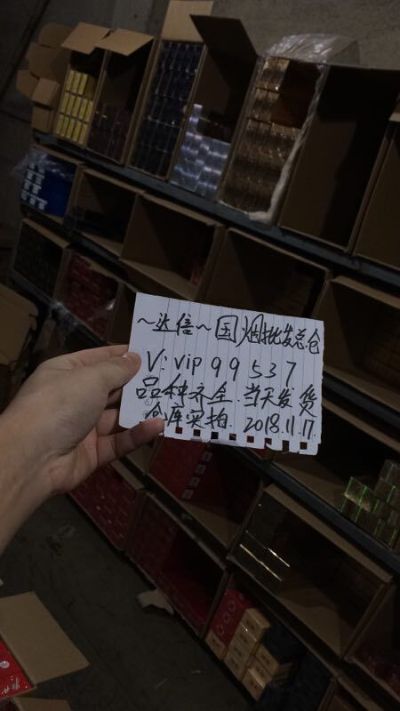 ～达信～国烟批发总仓
V:vip99537
品种齐全 当天发货
仓库实拍 2018.11.17